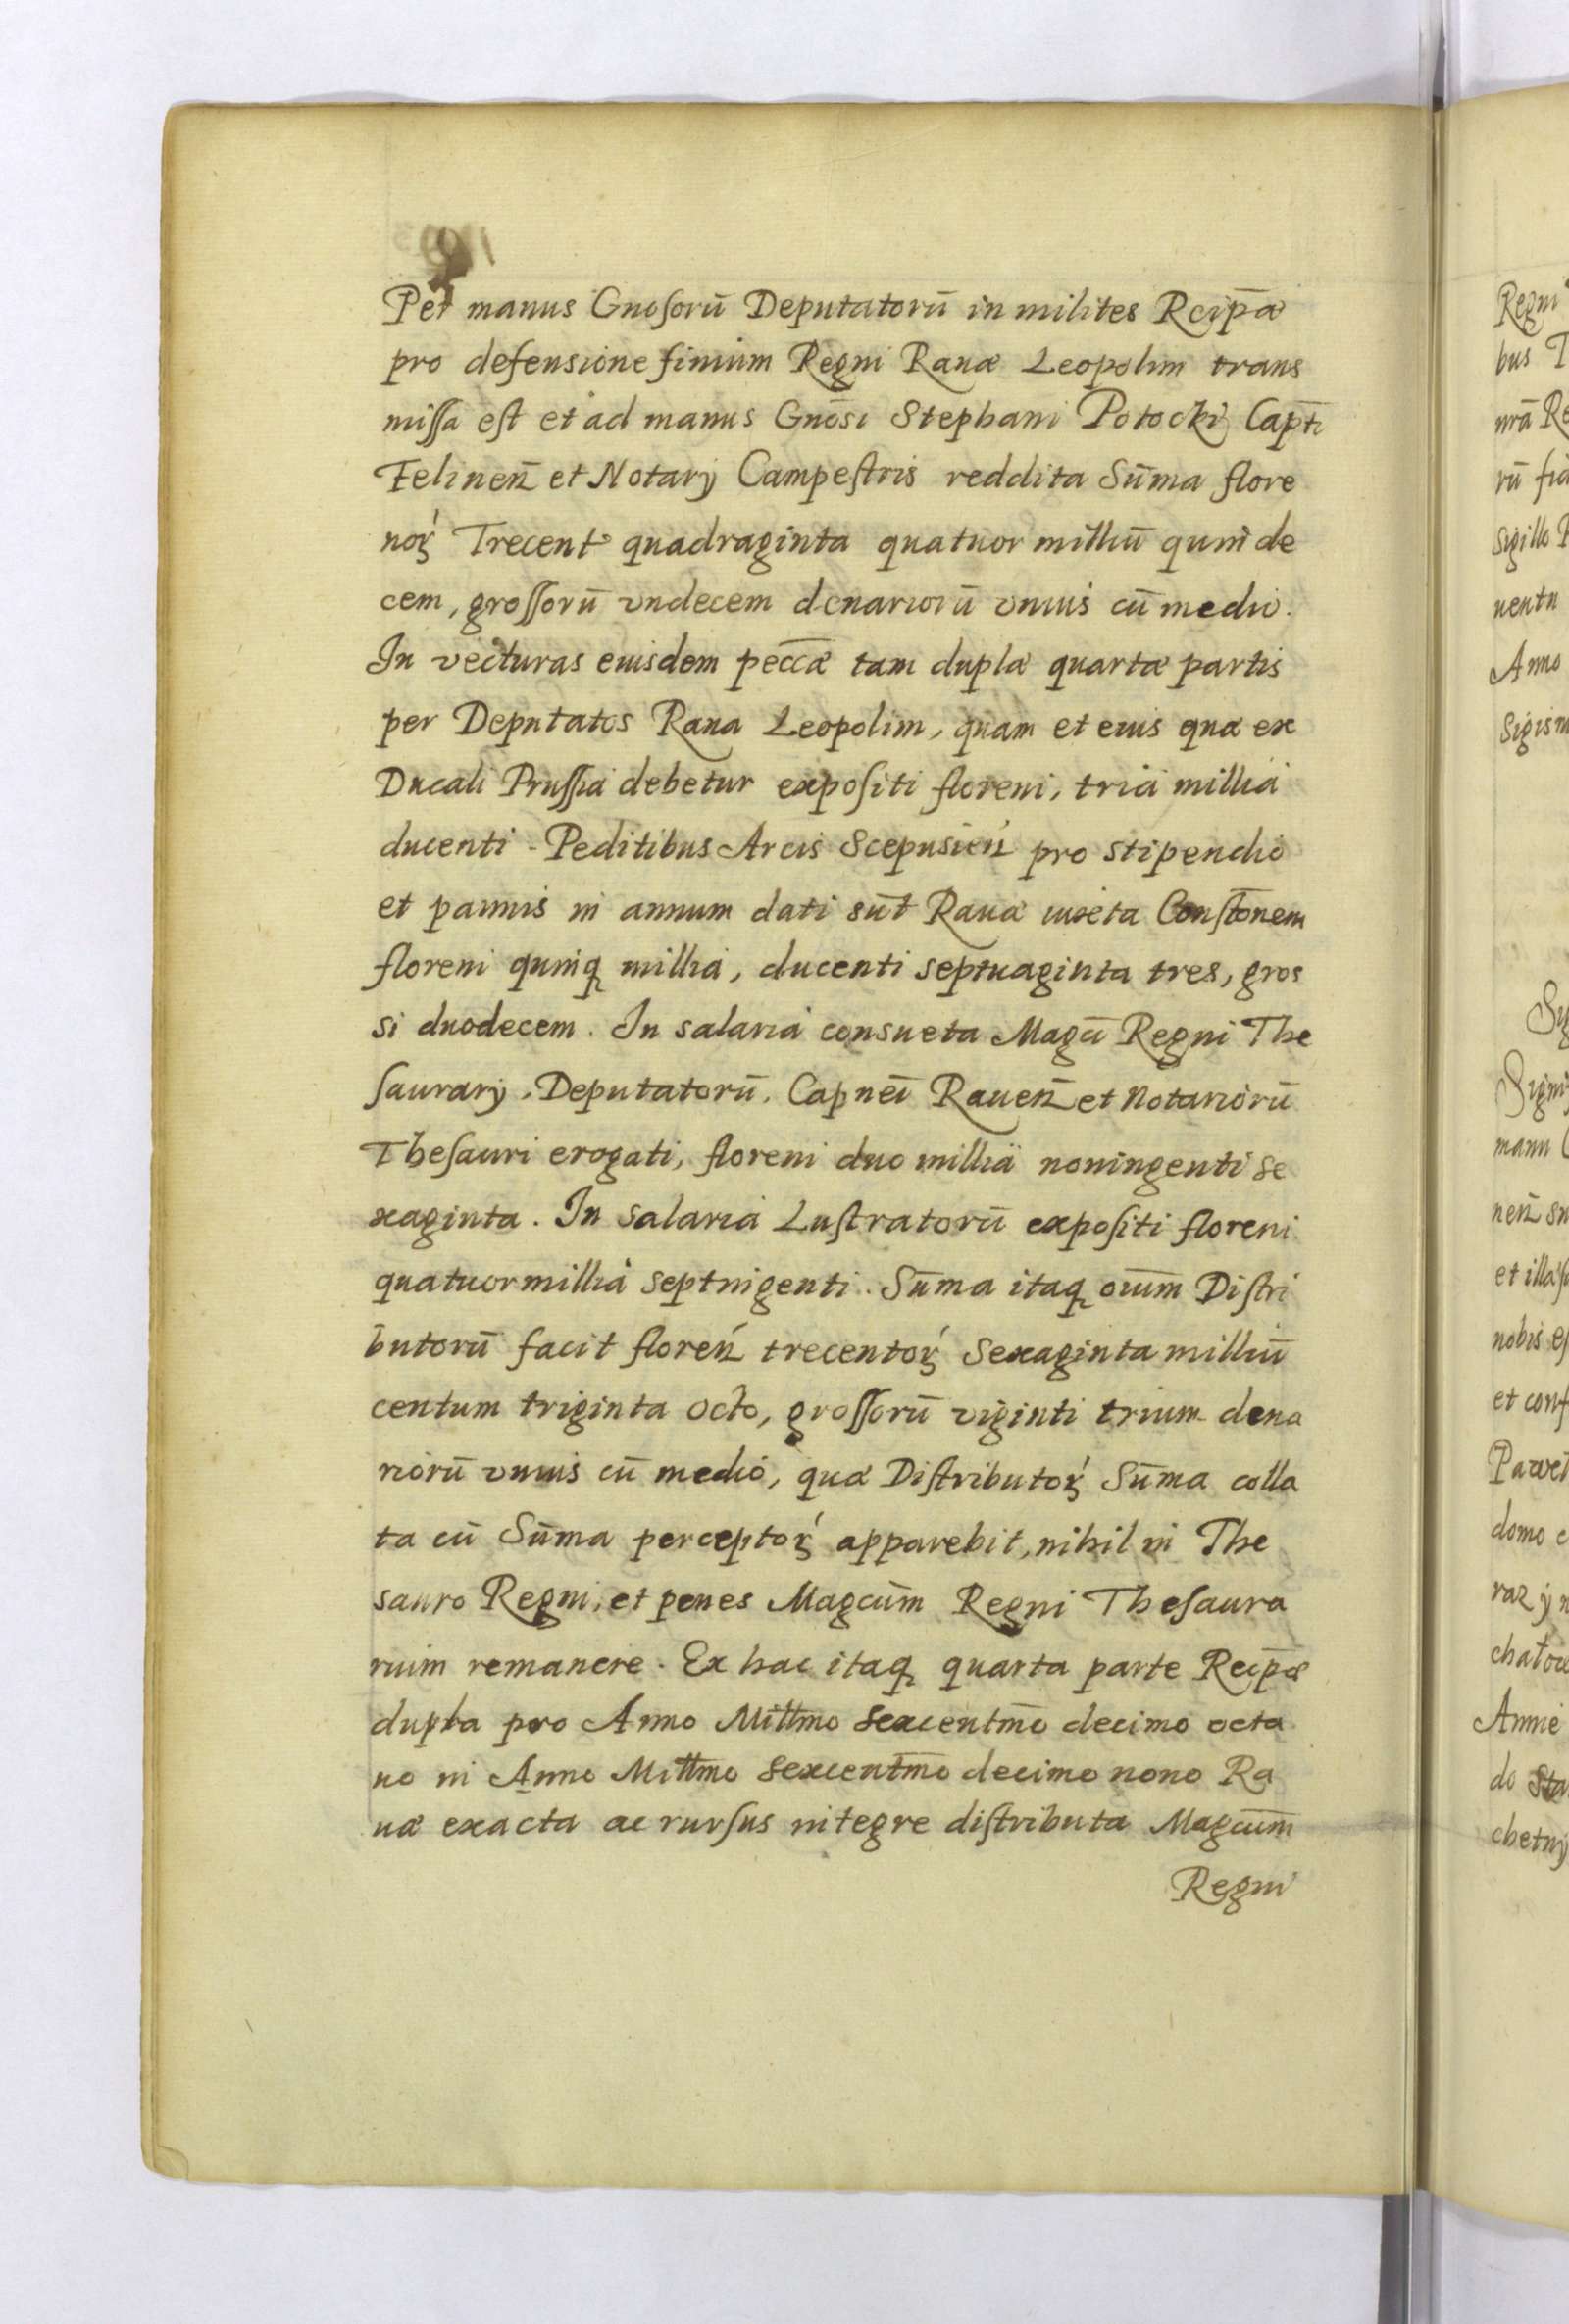 Per manus Gnosorū Deputatorū in milites Reipā
pro defensione finium Regni Rauæ Leopolim trans
missa est et ad manus Gnōsi Stephani Potocki Capti
Felinen̄ et Notarij Campestris reddita Sūma flore
noꝝ Trecent quadraginta quatuor milliū quinde
cem, grossorū vndecem denariorū vnius cū medio.
In vecturas eiusdem peccæ tam duplæ quartæ partis
per Deputatos Raua Leopolim, quam et eius quæ ex
Ducali Prussia debetur expositi floreni, tria millia
ducenti - Peditibus Arcis Scepusień pro stipendio
et pannis in annum dati sūt Rauæ iuxta Constōnem
floreni quinqꝫ millia, ducenti septuaginta tres, gros
si duodecem. In salaria consueta Magci Regni The
saurarij, Deputatorū, Capnei Rauen̄ et Notariorū
Thesauri erogati, floreni duo millia noningenti se
xaginta. In salaria Lustratorū expositi floreni
quatuor millia septingenti. Sūma itaqꝫ oium̄ Distri
butorū facit floreń trecentoꝝ sexaginta milliū
centum triginta octo, grossorū viginti trium dena
riorū vnius cū medio, quæ Distributoꝝ Sūma colla
ta cū Sūma perceptoꝝ apparebit, nihil in The
sauro Regni, et penes Magcūm Regni Thesaura
rium remanere. Ex hac itaqꝫ quarta parte Reipæ
dupla pro Anno Millmo sexcentmō decimo octa
uo in Anno Millmo sexcentmō decimo nono Ra
uæ exacta ac rursus integre distributa Magcūm
Regni